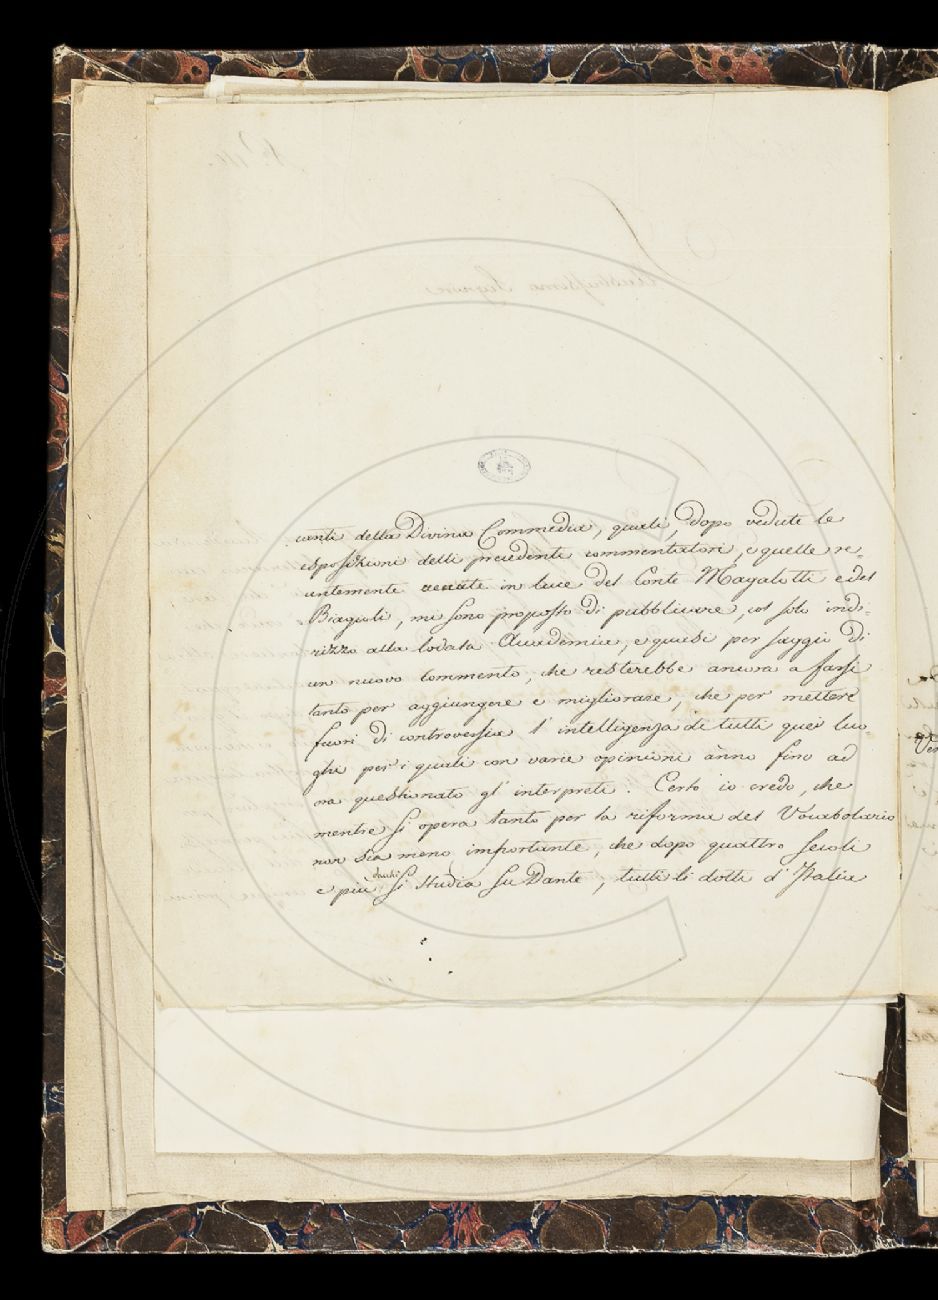 canti della Divina Commedia, quali, dopo vedute le
esposizioni delli precedenti commentatori, e quelle re=
centemente recate in luce del Conte Magalotti e del
Biagioli, mi sono proposto di pubblicare, col solo indi=
rizzo alla lodata Accademia, e quasi per saggio di
un nuovo Commento, che resterebbe ancora a farsi
tanto per aggiungere e migliorare, che per mettere
fuori di controversia l'intelligenza di tutti quei luo=
ghi per i quali con varie opinioni ànno fino ad
ora questionato gl'interpreti. Certo io credo, che
mentre si opera tanto per la riforma del Vocabolario
non sia meno importante, che dopo quattro secoli
e più dacchè si studia su Dante, tutti li dotti d'Italia
Illustrissimo Signore